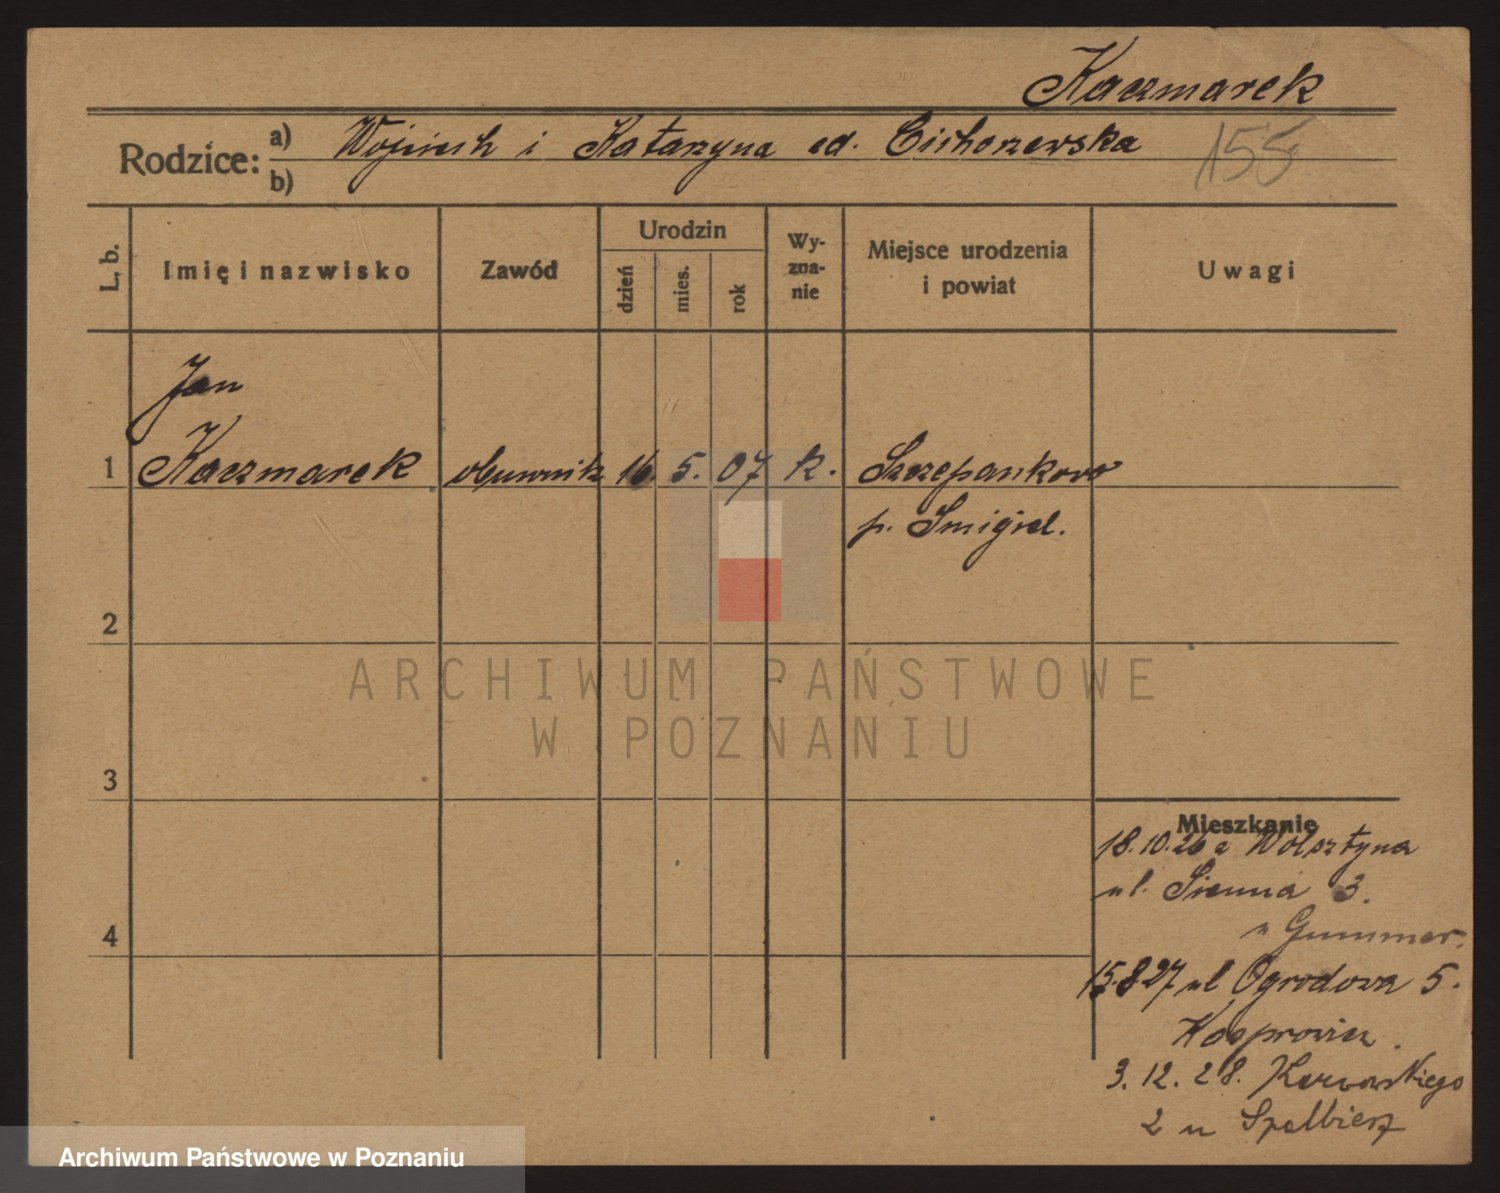 Kaczmarek
Rodzice: a) Wojciech i Katarzyna Cichorzewska
b)
155
L. b.
Imię i nazwisko
Zawód
Urodzin
dzień
mies.
rok
Wy-
zna-
nie
Miejsce urodzenia
i powiat
Uwagi
Jan
1 Kaczmarek obuwnik 16. 5. 07 k. Szczepankowo
p. Śmigiel.
2
ARCHIWUM PAŃSTWOWE
W POZNANIU
3
Mieszkanie
18.10.26 z Wolsztyna
ul. Sienna 3.
u Gummer.
4
15.8.27 ul Ogrodowa 5.
3. 12. 28.
2 u
Archiwum Państwowe w Poznaniu